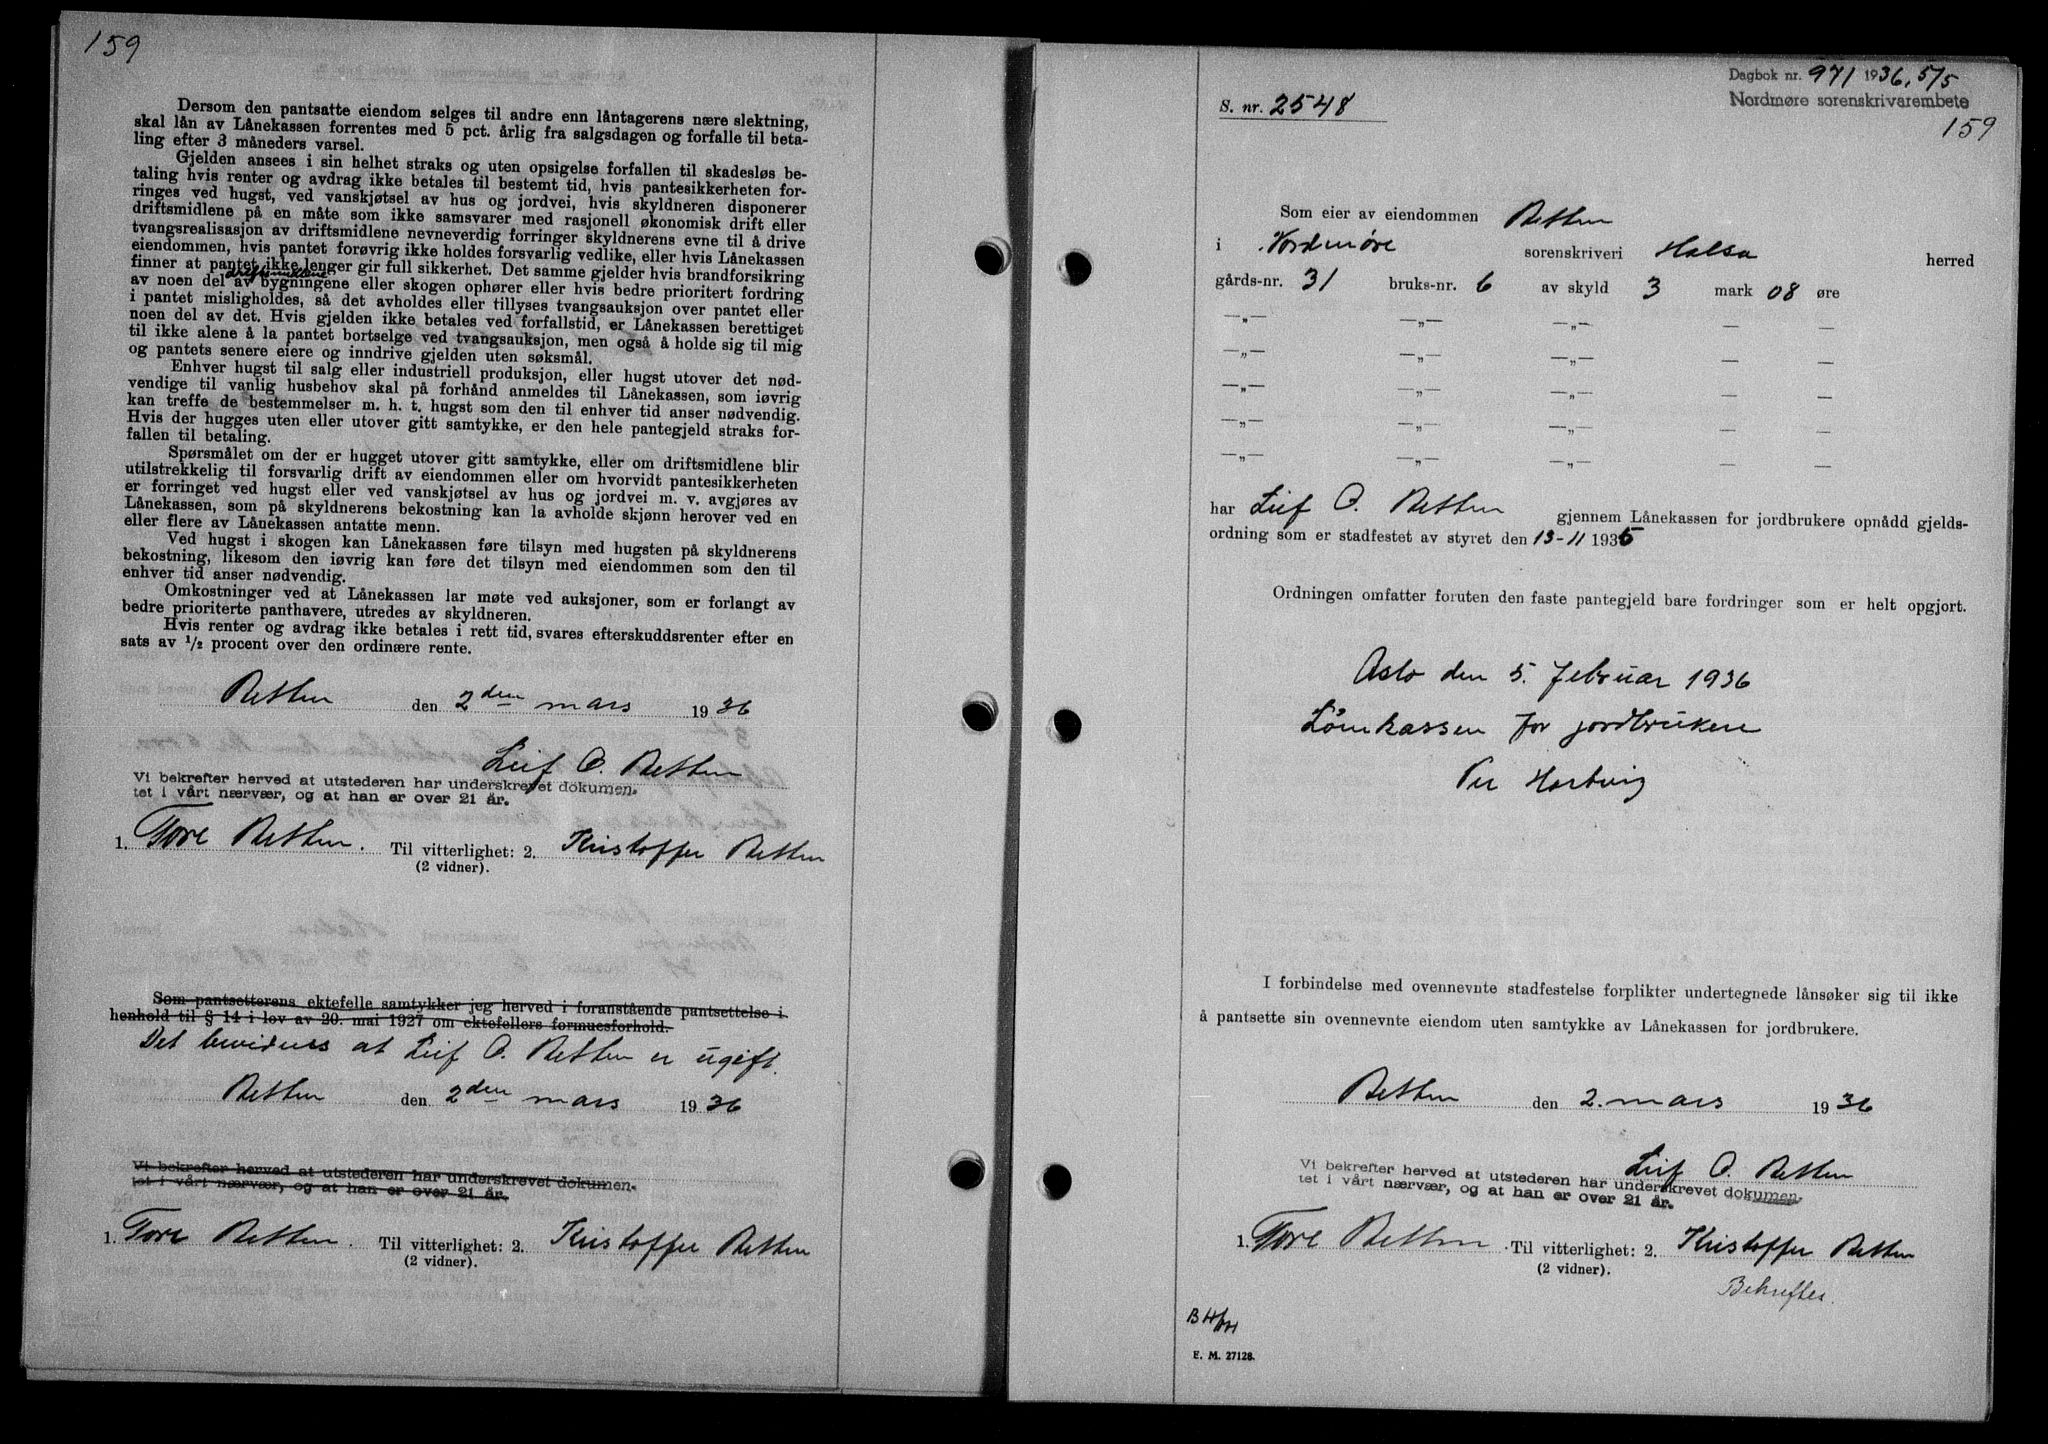 159
Dersom den pantsatte eiendom selges til andre enn låntagerens nære slektning,
skal lån av Lånekassen forrentes med 5 pct. årlig fra salgsdagen og forfalle til beta-
ling efter 3 måneders varsel.
Gjelden ansees i sin helhet straks og uten opsigelse forfallen til skadesløs be-
taling hvis renter og avdrag ikke betales til bestemt tid, hvis pantesikkerheten for-
ringes ved hugst, ved vanskjøtsel av hus og jordvei, hvis skyldneren disponerer
driftsmidlene på en måte som ikke samsvarer med rasjonell økonomisk drift eller
tvangsrealisasjon av driftsmidlene nevneverdig forringer skyldnerens evne til å drive
eiendommen, hvis pantet forøvrig ikke holdes forsvarlig vedlike, eller hvis Lånekassen
finner at pantet ikke lenger gir full sikkerhet. Det samme gjelder hvis brandforsikring
driftsmidlene
av noen del av bygningene eller skogen ophører eller hvis bedre prioritert fordring
i pantet misligholdes, så det avholdes eller tillyses tvangsauksjon over pantet eller
noen del av det. Hvis gjelden ikke betales ved forfallstid, er Lånekassen berettiget
til ikke alene å la pantet bortselge ved tvangsauksjon, men også å holde sig til mig
og pantets senere eiere og inndrive gjelden uten søksmål.
Enhver hugst til salg eller industriell produksjon, eller hugst utover det nød-
vendige til vanlig husbehov skal på forhånd anmeldes til Lånekassen, som iøvrig
kan treffe de bestemmelser m. h. t. hugst som den til enhver tid anser nødvendig.
Hvis der hugges uten eller utover gitt samtykke, er den hele pantegjeld straks for-
fallen til betaling.
Spørsmålet om der er hugget utover gitt samtykke, eller om driftsmidlene blir
utilstrekkelig til forsvarlig drift av eiendommen eller om hvorvidt pantesikkerheten
er forringet ved hugst eller ved vanskjøtsel av hus og jordvei m. v. avgjøres av
Lånekassen, som på skyldnerens bekostning kan la avholde skjønn herover ved en
eller flere av Lånekassen antatte menn.
Ved hugst i skogen kan Lånekassen føre tilsyn med hugsten på skyldnerens
bekostning, likesom den iøvrig kan føre det tilsyn med eiendommen som den til
enhver tid anser nødvendig.
Omkostninger ved at Lånekassen lar møte ved auksjoner, som er forlangt av
bedre prioriterte panthavere, utredes av skyldneren.
Hvis renter og avdrag ikke betales i rett tid, svares efterskuddsrenter efter en
sats av 1/2 procent over den ordinære rente.
Betten den 2den mars 1936
Leif O. Betten
Vi bekrefter herved at utstederen har underskrevet dokumen-
tet i vårt nærvær, og at han er over 21 år.
1. Tore Betten. Til vitterlighet: 2. Kristoffer Betten
(2 vidner).
Som pantsetterens ektefelle samtykker jeg herved i foranstående pantsettelse i
henhold til § 14 i lov av 20. mai 1927 om ektefellers formuesforhold.
Det bevidnes at Leif O. Betten er ugift.
Betten den 2den mars 1936
Vi bekrefter herved at utstederen har underskrevet dokumen-
tet i vårt nærvær, og at han er over 21 år.
1. Tore Betten. Til vitterlighet: 2. Kristoffer Betten
(2 vidner).
Dagbok nr. 971 1936, 5/5
Nordmøre sorenskrivarembete
S. nr. 2548
159
Som eier av eiendommen Betten
i Nordmøre sorenskriveri Halsa herred
gårds-nr. 31 bruks-nr. 6 av skyld 3 mark 08 øre
—„— —„— —„— — —
—„— —„— —„— — —
—„— —„— —„— — —
—„— —„— —„— — —
—„— —„— —„— — —
har Leif O. Betten gjennem Lånekassen for jordbrukere opnådd gjelds-
ordning som er stadfestet av styret den 13-11 1935
Ordningen omfatter foruten den faste pantegjeld bare fordringer som er helt opgjort.
Oslo den 5. februar 1936
Lånekassen for jordbrukere
Per Hartvig
I forbindelse med ovennevnte stadfestelse forplikter undertegnede lånsøker sig til ikke
å pantsette sin ovennevnte eiendom uten samtykke av Lånekassen for jordbrukere.
Betten den 2. mars 1936
Leif O. Betten
Vi bekrefter herved at utstederen har underskrevet dokumen-
tet i vårt nærvær, og at han er over 21 år.
1. Tore Betten. Til vitterlighet: 2. Kristoffer Betten
(2 vidner).
Bekreftes.
E. M. 27128.